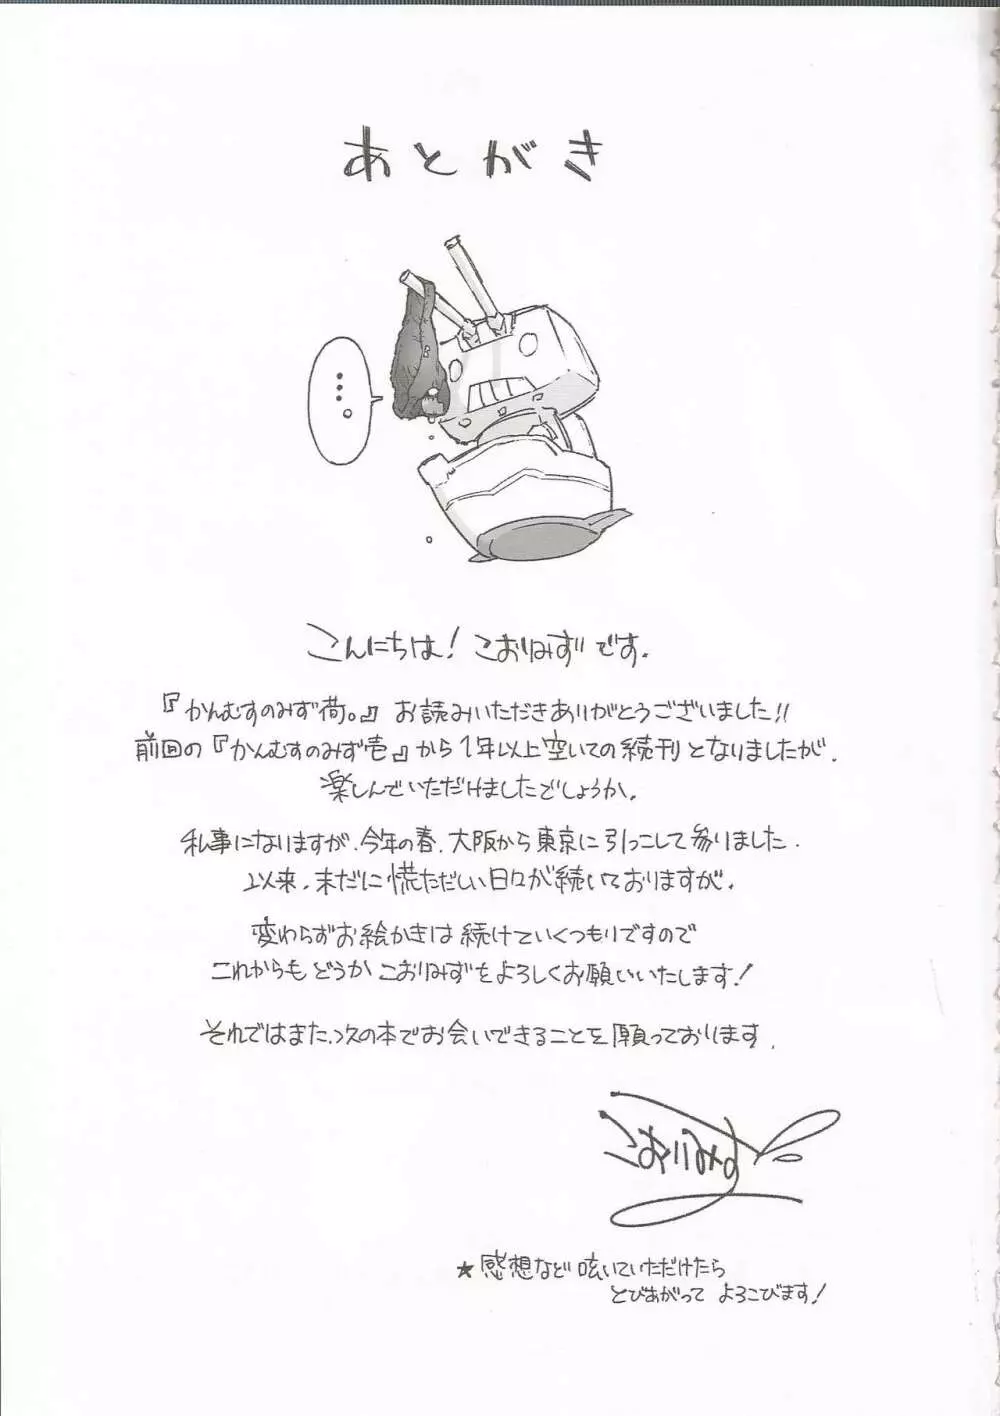 あとがき
…。
こんにちは！こおりみずです。
『かんむすのみず荷。』お読みいただきありがとうございました!!
前回の『かんむすのみず壱』から1年以上空いての続刊となりましたが、
楽しんでいただけましたでしょうか。
私事になりますが、今年の春、大阪から東京に引っこして参りました。
以来、未だに慌ただしい日々が続いておりますが、
変わらずお絵かきは続けていくつもりですので
これからもどうかこおりみずをよろしくお願いいたします！
それではまた、次の本でお会いできることを願っております。
こおりみず
★感想など呟いていただけたら
とびあがってよろこびます！